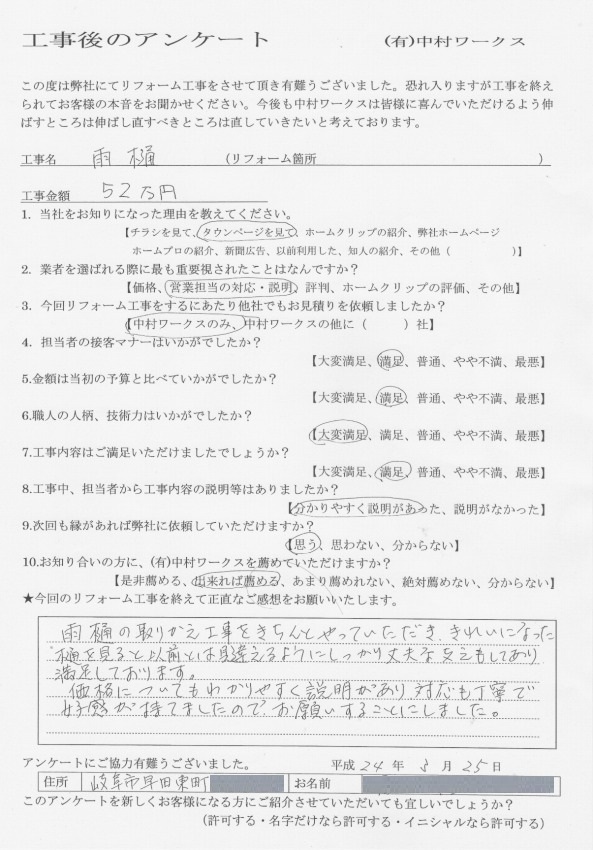 工事後のアンケート (有)中村ワークス
この度は弊社にてリフォーム工事をさせて頂き有難うございました。恐れ入りますが工事を終え
られてお客様の本音をお聞かせください。今後も中村ワークスは皆様に喜んでいただけるよう伸
ばすところは伸ばし直すべきところは直していきたいと考えております。
工事名 雨樋 (リフォーム箇所 )
工事金額 52万円
1. 当社をお知りになった理由を教えてください。
【チラシを見て、タウンページを見て、ホームクリップの紹介、弊社ホームページ
ホームプロの紹介、新聞広告、以前利用した、知人の紹介、その他( )】
2. 業者を選ばれる際に最も重要視されたことはなんですか?
【価格、営業担当の対応・説明、評判、ホームクリップの評価、その他】
3. 今回リフォーム工事をするにあたり他社でもお見積りを依頼しましたか?
【中村ワークスのみ、中村ワークスの他に( )社】
4. 担当者の接客マナーはいかがでしたか?
【大変満足、満足、普通、やや不満、最悪】
5.金額は当初の予算と比べていかがでしたか?
【大変満足、満足、普通、やや不満、最悪】
6.職人の人柄、技術力はいかがでしたか?
【大変満足、満足、普通、やや不満、最悪】
7.工事内容はご満足いただけましたでしょうか?
【大変満足、満足、普通、やや不満、最悪】
8.工事中、担当者から工事内容の説明等はありましたか?
【分かりやすく説明があった、説明がなかった】
9.次回も縁があれば弊社に依頼していただけますか?
【思う、思わない、分からない】
10.お知り合いの方に、(有)中村ワークスを薦めていただけますか?
【是非薦める、出来れば薦める、あまり薦めれない、絶対薦めない、分からない】
★今回のリフォーム工事を終えて正直なご感想をお願いいたします。
雨樋の取りかえ工事をきちんとやっていただき、きれいになった
樋を見ると以前とは見違えるようにしっかり丈夫な支えもしてあり
満足しております。
価格についてもわかりやすく説明があり対応も丁寧で
好感が持てましたので、お願いすることにしました。
アンケートにご協力有難うございました。 平成 24 年 8 月 25 日
住所 岐阜市早田東町 お名前
このアンケートを新しくお客様になる方にご紹介させていただいても宜しいでしょうか?
(許可する・名字だけなら許可する・イニシャルなら許可する)